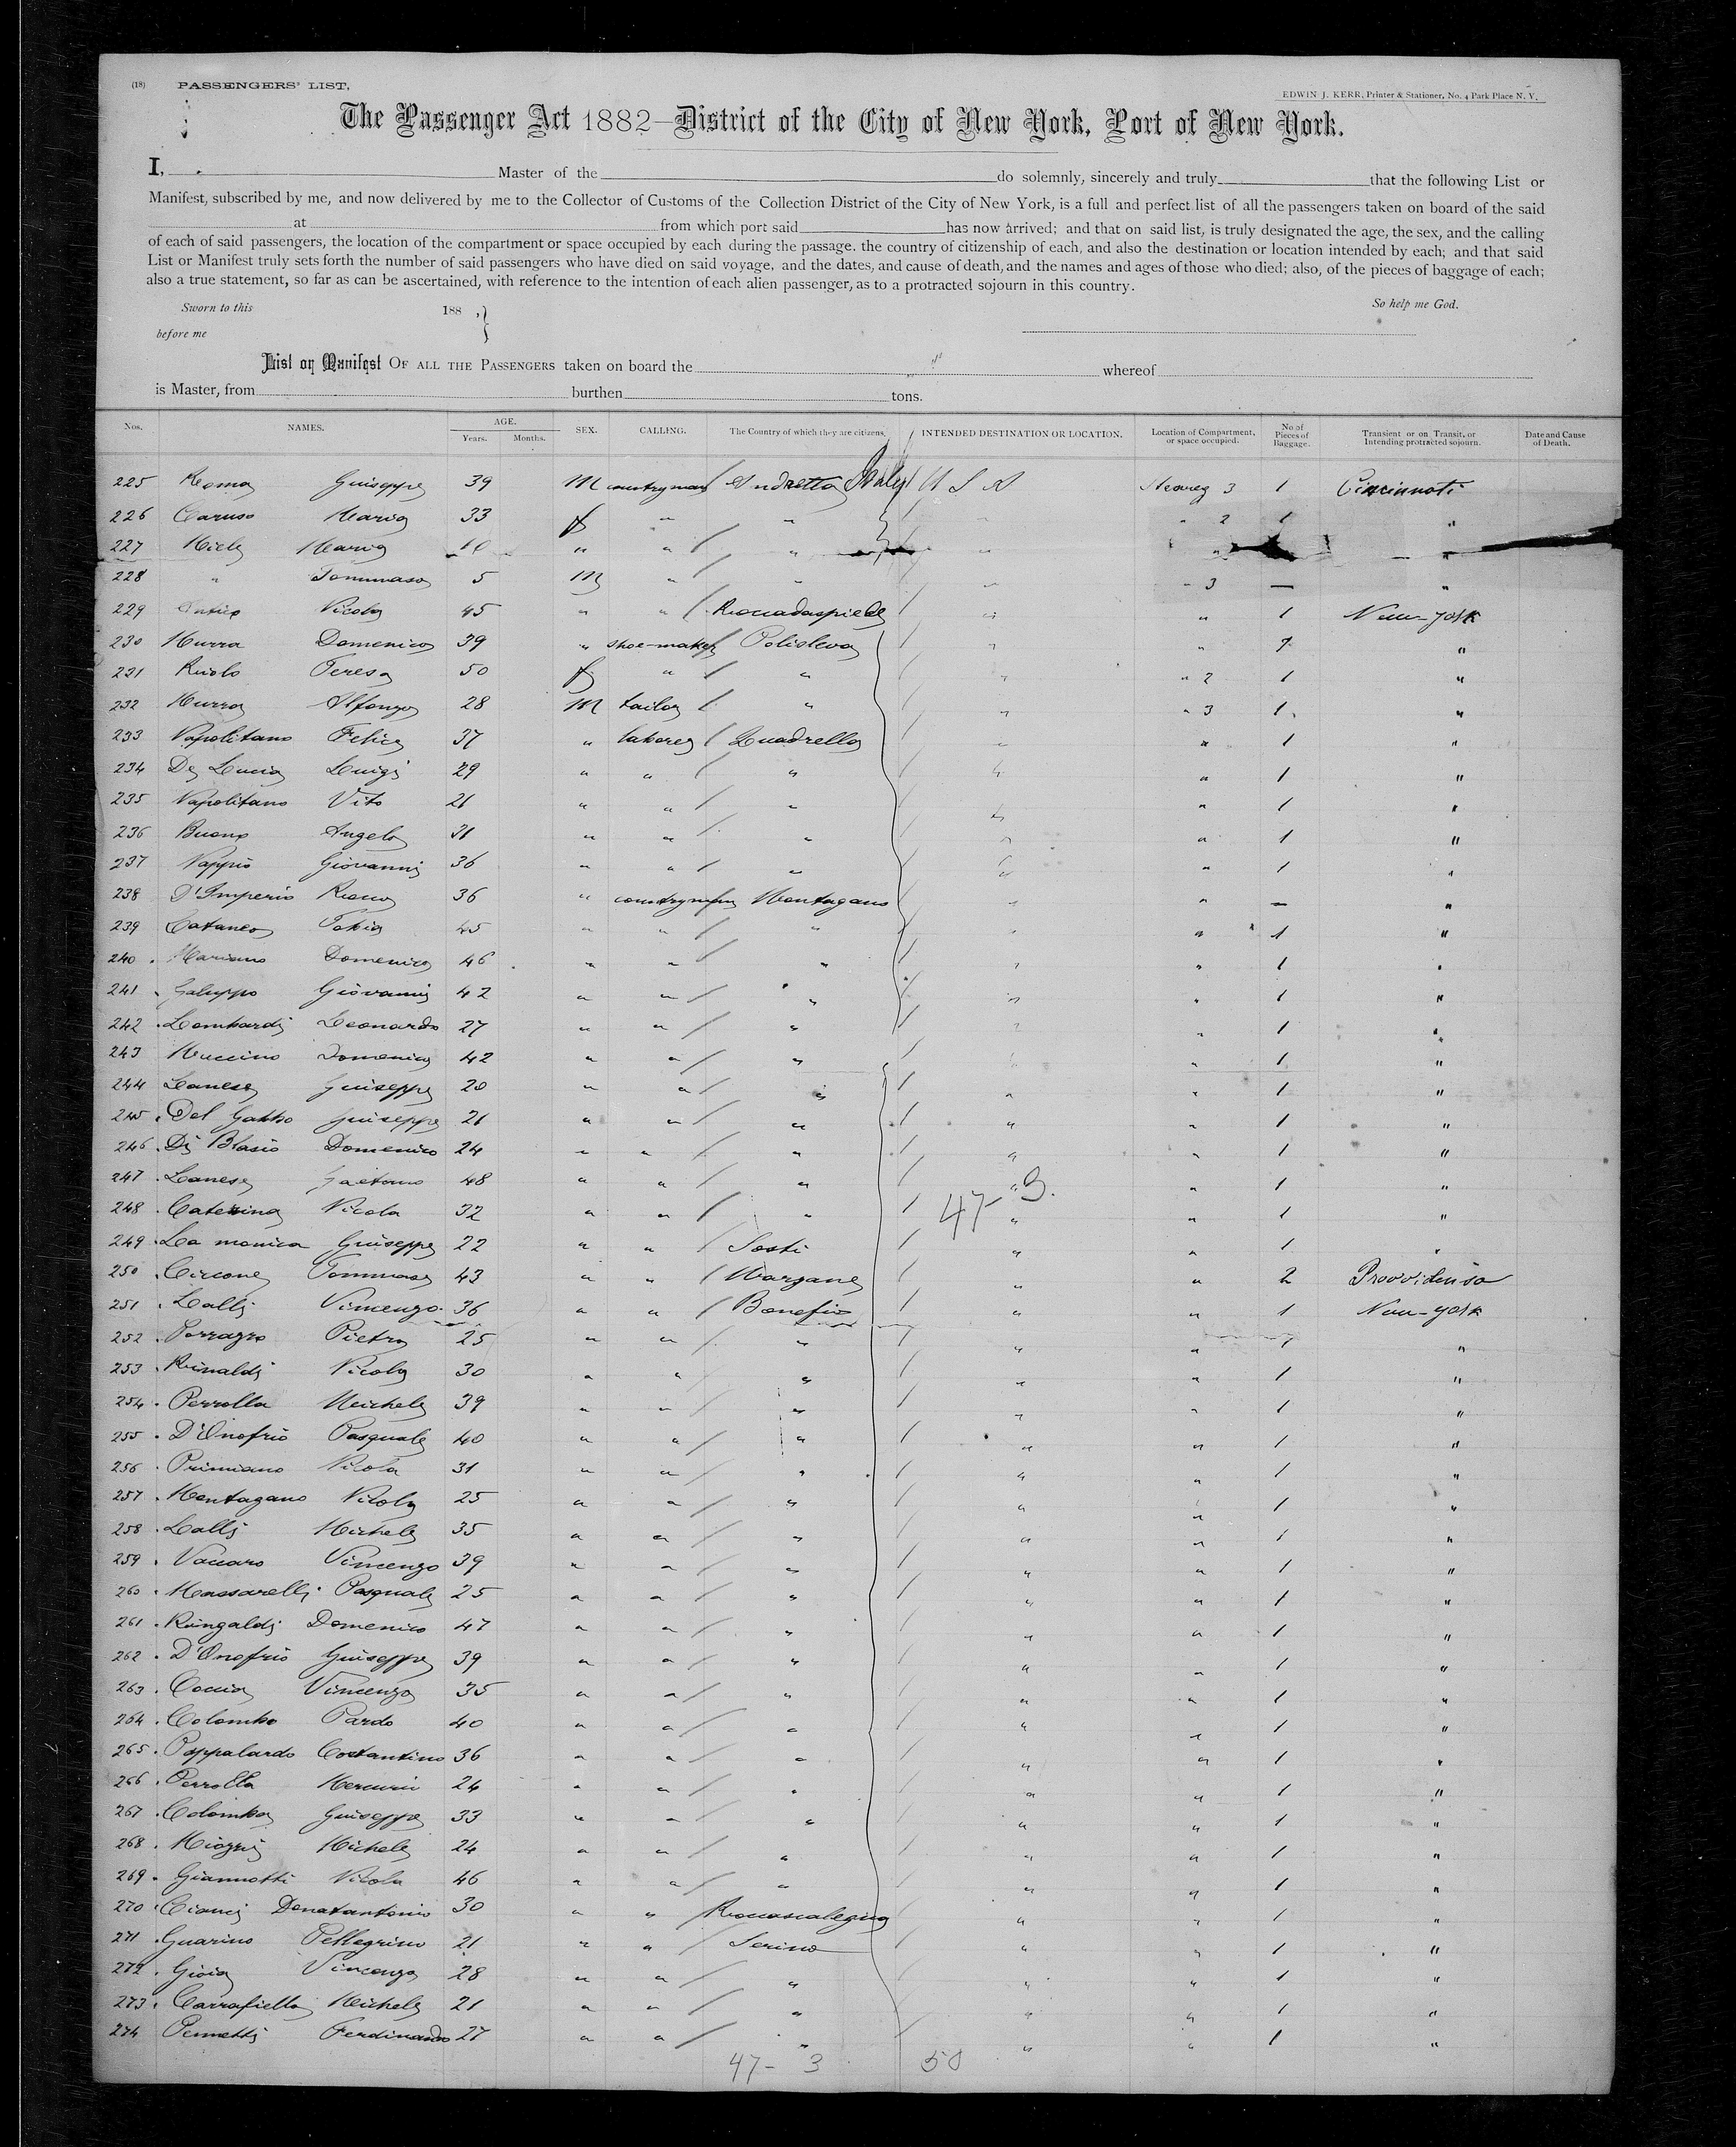 (18) PASSENGERS' LIST.
EDWIN J. KERR, Printer & Stationer, No. 4 Park Place N. Y.
The Passenger Act 1882—District of the City of New York, Port of New York.
I, Master of the do solemnly, sincerely and truly that the following List or
Manifest, subscribed by me, and now delivered by me to the Collector of Customs of the Collection District of the City of New York, is a full and perfect list of all the passengers taken on board of the said
at from which port said has now arrived; and that on said list, is truly designated the age, the sex, and the calling
of each of said passengers, the location of the compartment or space occupied by each during the passage. the country of citizenship of each, and also the destination or location intended by each; and that said
List or Manifest truly sets forth the number of said passengers who have died on said voyage, and the dates, and cause of death, and the names and ages of those who died; also, of the pieces of baggage of each;
also a true statement, so far as can be ascertained, with reference to the intention of each alien passenger, as to a protracted sojourn in this country.
Sworn to this 188 , } So help me God.
before me
List or Manifest OF ALL THE PASSENGERS taken on board the whereof
is Master, from burthen tons.
Nos. NAMES. AGE. Years. Months. SEX. CALLING. The Country of which they are citizens. INTENDED DESTINATION OR LOCATION. Location of Compartment, or space occupied. No. of Pieces of Baggage. Transient or on Transit, or Intending protracted sojourn. Date and Cause of Death.
225 Roma Guiseppe 39 M countryman Andretta Italy U S A 3 1 Cincinnati
226 Caruso Maria 33 f " " " " 2 1 "
227 Miele Maria " " " " " "
228 " Tommaso 5 M " " " " 3 — "
229 Nicola 45 " " Roccadaspide " " 1 New-york
230 Murra Domenico 39 " shoe-maker Polisleva " " "
231 Ruolo Teresa 50 f " " " " 2 1 "
232 Murra Alfonzo 28 M tailor " " " 3 1 "
233 Napolitano Felice 37 " laborer Quadrella " " 1 "
234 De Lucia Luigi 29 " " " " " 1 "
235 Napolitano Vito 21 " " " " " 1 "
236 Buono Angelo 31 " " " " " 1 "
237 Nappio Giovanni 36 " " " " " 1 "
238 D'Imperio Rocco 36 " countryman Montagano " " — "
239 Cataneo Tobia 45 " " " " " 1 "
240 Mariano Domenico 46 " " " " " 1 "
241 Galuppo Giovanni 42 " " " " " 1 "
242 Lombardi Leonardo 27 " " " " " 1 "
243 Muccino Domenico 42 " " " " " 1 "
244 Lanese Guiseppe 20 " " " " " 1 "
245 Del Gabbo Guiseppe 21 " " " " " 1 "
246 Di Blasio Domenico 24 " " " " " 1 "
247 Lanese Gaetano 48 " " " " " 1 "
47- 3.
248 Caterina Nicola 32 " " " " " 1 "
249 La monica Guiseppe 22 " " Sosti " " 1 "
250 Circone Tommaso 43 " " Morgane " " 2 Provvidensa
251 Lalli Vincenzo 36 " " Bonefro " " 1 New-york
252 Porrazzo Pietro 25 " " " " " 1 "
253 Rinaldi Nicola 30 " " " " " 1 "
254 Perrotta Michele 39 " " " " " 1 "
255 D'Onofrio Pasquale 40 " " " " " 1 "
256 Primiano Nicola 31 " " " " " 1 "
257 Montagano Nicola 25 " " " " " 1 "
258 Lalli Michele 35 " " " " " 1 "
259 Vaccaro Vincenzo 39 " " " " " 1 "
260 Massarelli Pasquale 25 " " " " " 1 "
261 Ringaldi Domenico 47 " " " " " 1 "
262 D'Onofrio Guiseppe 39 " " " " " 1 "
263 Coccia Vincenzo 35 " " " " " 1 "
264 Colombo Pardo 40 " " " " " 1 "
265 Pappalardo Costantino 36 " " " " " 1 "
266 Perrotta Mercurio 24 " " " " " 1 "
267 Colombo Guiseppe 33 " " " " " 1 "
268 Miozzi Michele 24 " " " " " 1 "
269 Giannotti Nicola 46 " " " " " 1 "
270 Cianci Donatantonio 30 " " Roccascalegna " " 1 "
271 Guarino Pellegrino 21 " " Serino " " 1 "
272 Gioia Vincenzo 28 " " " " " 1 "
273 Carrafiello Michele 21 " " " " " 1 "
274 Pennetti Ferdinando 27 " " " " " 1 "
47- 3 50